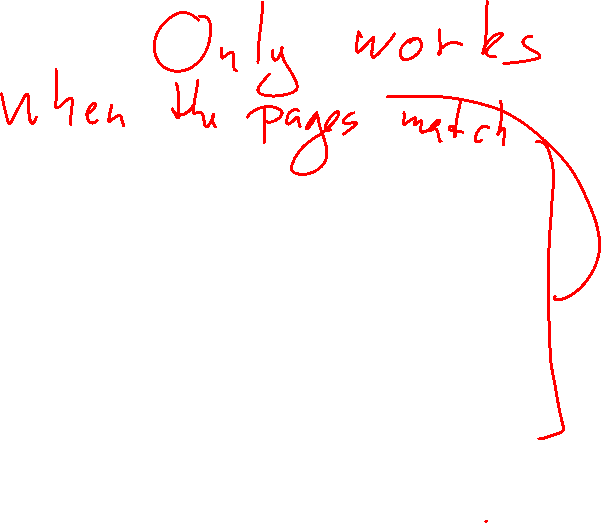 Only works
when the pages match